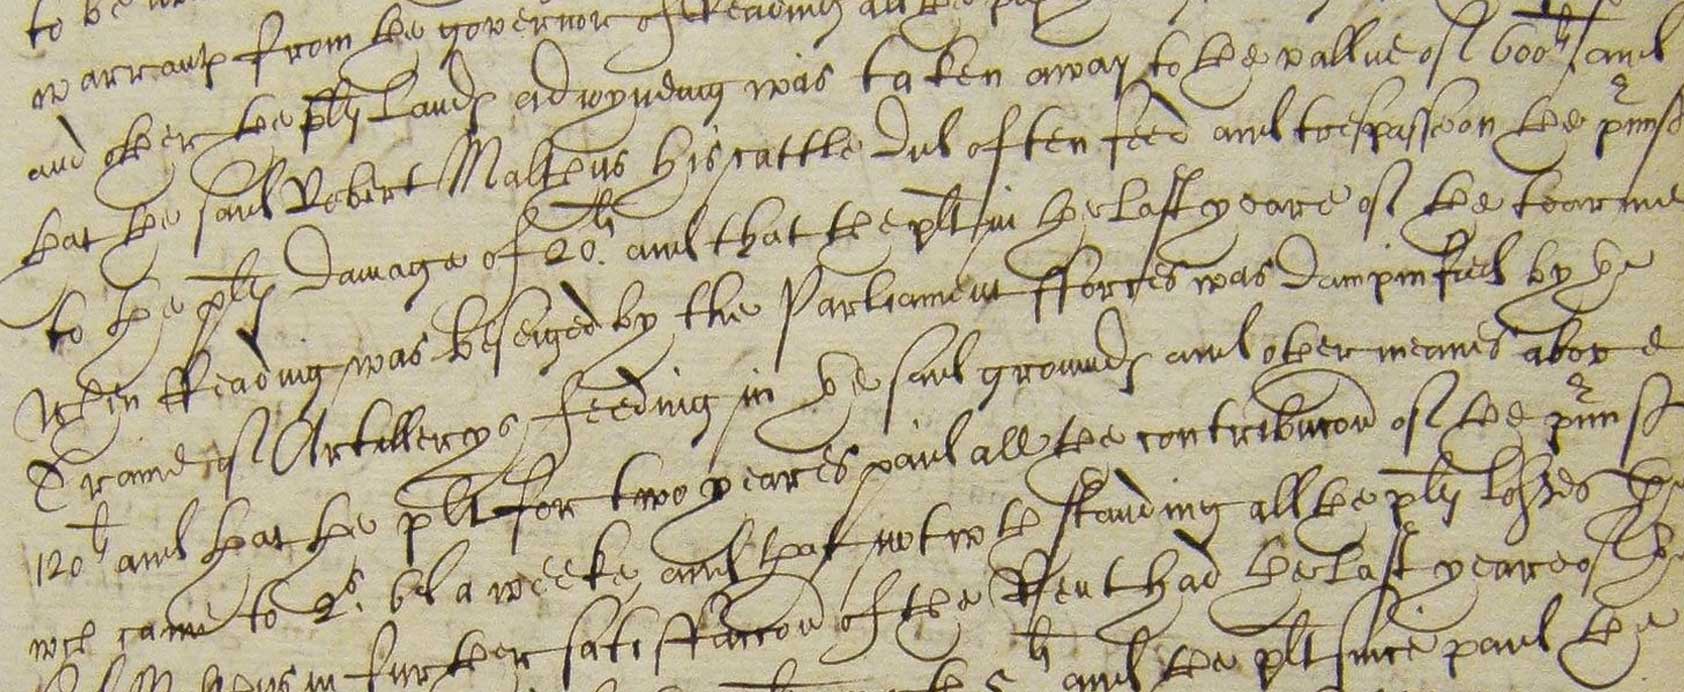 to be
warrant from the governor of Reading all the
and other the plts lands adioyneing was taken away to the vallue of 600li and
that the said Robert Malthus his cattle did often feed and trespasse on the prmiss
to the plts damage of 20li. and that the plt in the last yeare of the tearme
when Reading was beseiged by the Parliament fforces was dampnified by the
Traine of Artillerys feeding in the said grounds and other meanes above
120li and that the plt for two yeares paid all the contribucon of the prmiss
wch came to 2s. 6d a weeke and that notwthstanding all the plts losses he
in further satisfaccon of the Rent had the last yeare of the
and the plt since paid the